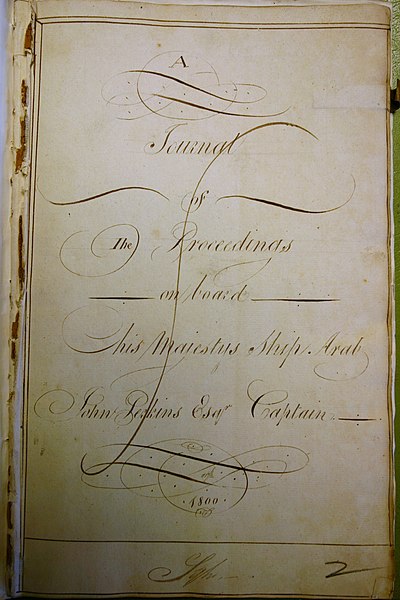 A
Journal
of
The Proceedings
on board
His Majestys Ship Arab
John Perkins Esqr Captain
1800
2